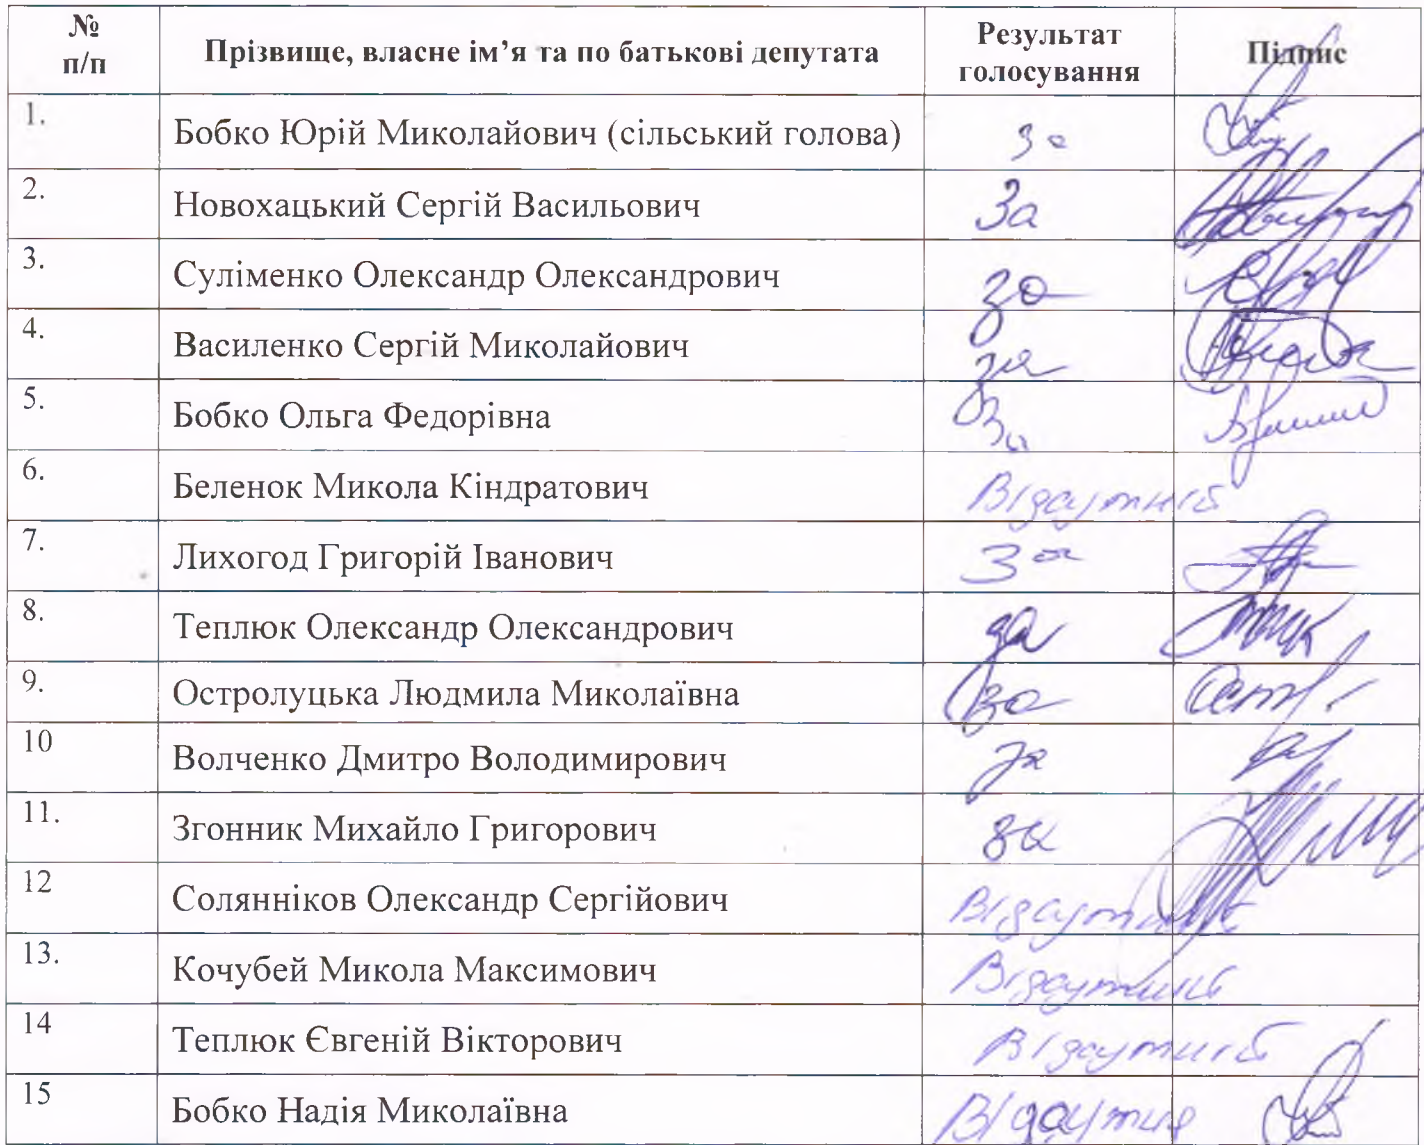 № п/п Прізвище, власне ім’я та по батькові депутата Результат голосування Підпис
1. Бобко Юрій Миколайович (сільський голова) За
2. Новохацький Сергій Васильович За
3. Суліменко Олександр Олександрович за
4. Василенко Сергій Миколайович за
5. Бобко Ольга Федорівна За
6. Беленок Микола Кіндратович Відсутній
7. Лихогод Григорій Іванович За
8. Теплюк Олександр Олександрович за
9. Остролуцька Людмила Миколаївна за
10 Волченко Дмитро Володимирович за
11. Згонник Михайло Григорович за
12 Солянніков Олександр Сергійович Відсутній
13. Кочубей Микола Максимович Відсутній
14 Теплюк Євгеній Вікторович Відсутній
15 Бобко Надія Миколаївна Відсутня